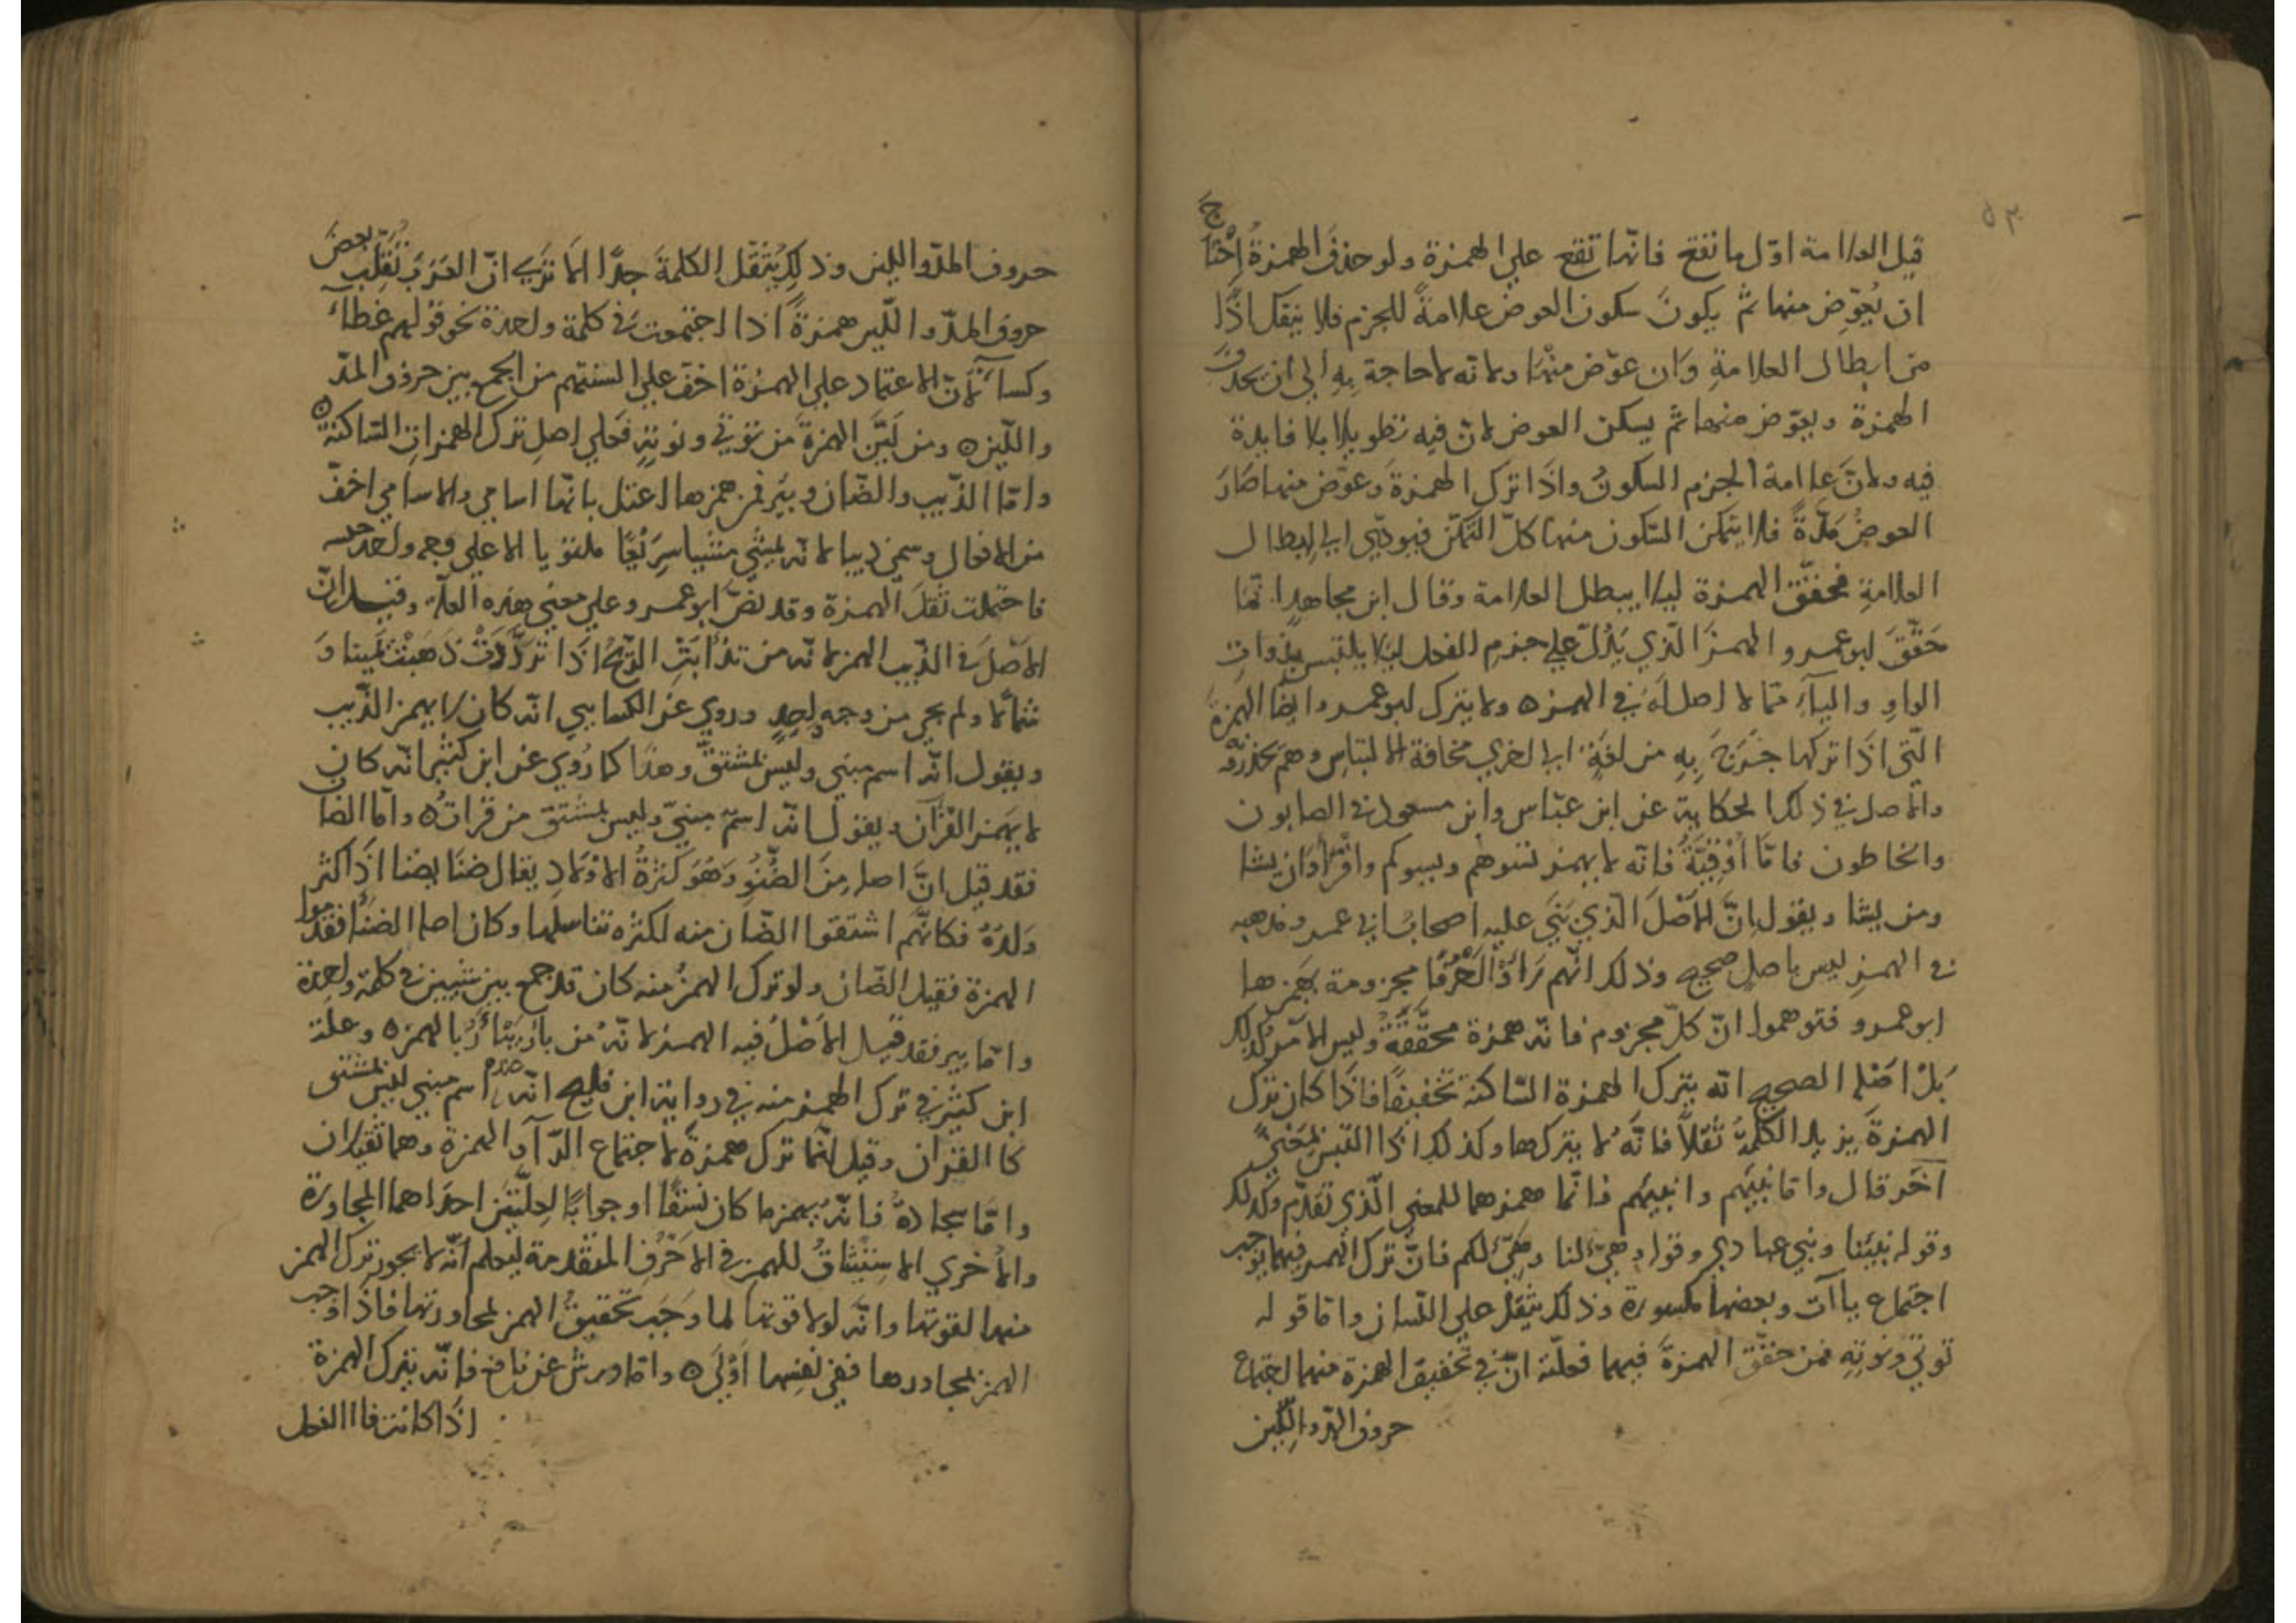 ٥٣
قيل العلامة اول ما تقع فانها تقع على الهمزة ولو حذف الهمزة احتاج
ان يعوض منها ثم يكون سكون العوض علامة للجزم فلا ينفك اذا
من ابطال العلامة وان عوض منها ولانه لا حاجة به الى ان يحذف
الهمزة ويعوض منها ثم يسكن العوض لان فيه تطويلا بلا فايدة
فيه ولان علامة الجزم السكون واذا ترك الهمزة وعوض منها صار
العوض مدة فلا يتمكن السكون منها كل التمكن فيودي الى ابطال
العلامة فحقق الهمزة ليلا يبطل العلامة وقال ابن مجاهد انما
حقق ابو عمرو الهمز الذي يدل على جزم الفعل ليلا يلتبس بذوات
الواو والياء مما لا اصل له في الهمزه ولا يترك ابو عمرو ايضا الهمزة
التي اذا تركها خرج به من لغة الى اخرى مخافة الالتباس وهم
والاصل في ذلك الحكاية عن ابن عباس وابن مسعود في الصابون
والخاطون فاما اوقية فانه لا يهمز ننسوهم ونسوكم واقرا وان نشا
ومن يشا ويقول ان الاصل الذي بني عليه اصحاب ابي عمرو مذهبه
في الهمز ليس باصل صحيح وذلك انهم راوا احرفا مجزومة يهمزها
ابو عمرو فتوهموا ان كل مجزوم فانه همزة محققة وليس الامر كذلك
بل اصله الصحيح انه يترك الهمزة الساكنة تخفيفا فاذا كان ترك
الهمزة يزيد الكلمة ثقلا فانه لا يتركها وكذلك اذا التبس بمعنى
آخر قال واما نبيهم وانبيهم فانما همزهما للمعنى الذي تقدم وكذلك
وقوله نبئنا ونبي عبادي وقوله وهيئ لنا ويهيئ لكم فان ترك الهمز فيهما يوجب
اجتماع ياآت وبعضها مكسورة وذلك يثقل على اللسان واما قوله
تووي وتوويه فمن حقق الهمزة فيهما فعلته ان في تخفيف الهمزة منهما اجتماع
حروف المد واللين
حروف المد واللين وذلك يثقل الكلمة جدا الا ترى ان العرب تقلب بعض
حروف المد واللين همزة اذا اجتمعت في كلمة واحدة نحو قولهم غطاء
وكساء لان الاعتماد على الهمزة اخف على السنتهم من الجمع بين حروف المد
واللين ه ومن لين الهمزة من تووي وتوويه فعلى اصل ترك الهمزات الساكنة ه
واما الذيب والضان وبير فمن همزها اعتل بانها اسامي والاسامي اخف
من الافعال وسمي ذيبا لانه يمشي مشيا سريعا ملتويا لا على وجه واحد
فاحتملت ثقل الهمزة وقد نص ابو عمرو على معنى هذه العلة وقيل ان
الاصل في الذيب الهمز لانه من تذابت الريح اذا ترددت ذهبت يمينا و
شمالا ولم يجي من وجه واحد وروي عن الكسايي انه كان لا يهمز الذيب
ويقول انه اسم مبني وليس بمشتق وهذا كما روي عن ابن كثير انه كان
لا يهمز القرآن ويقول انه اسم مبني وليس بمشتق من قرات ه واما الضان
فقد قيل ان اصله من الضنو وهو كثرة الاولاد يقال ضنا يضنا اذا كثر
ولده فكانهم اشتقوا الضان منه لكثرة تناسلها وكان اصله الضنا فقدموا
الهمزة فقيل الضان ولو ترك الهمز منه كان قد جمع بين شيين في كلمة واحدة
واما بير فقد قيل الاصل فيه الهمز لانه من بار يبار بالهمزه وعلة
ابن كثير في ترك الهمز منه في رواية ابن فليح انه اسم مبني ليس بمشتق
كالقران وقيل انما ترك همزة لاجتماع الراء والهمزة وهما ثقيلان
واما سجادة فانه يهمز ما كان نسقا او جوابا لعلتين احداهما المجاورة
والاخرى الاستيثاق للهمز في الاحرف المتقدمة ليعلم انه لا يجوز ترك الهمز
منها لقوتها وانه لولا قوتها لما وجب تحقيق الهمز لمجاورتها فاذا وجب
الهمز لمجاورها ففي نفسها اولى ه واما ورش عن نافع فانه يترك الهمزة
اذا كانت فا الفعل